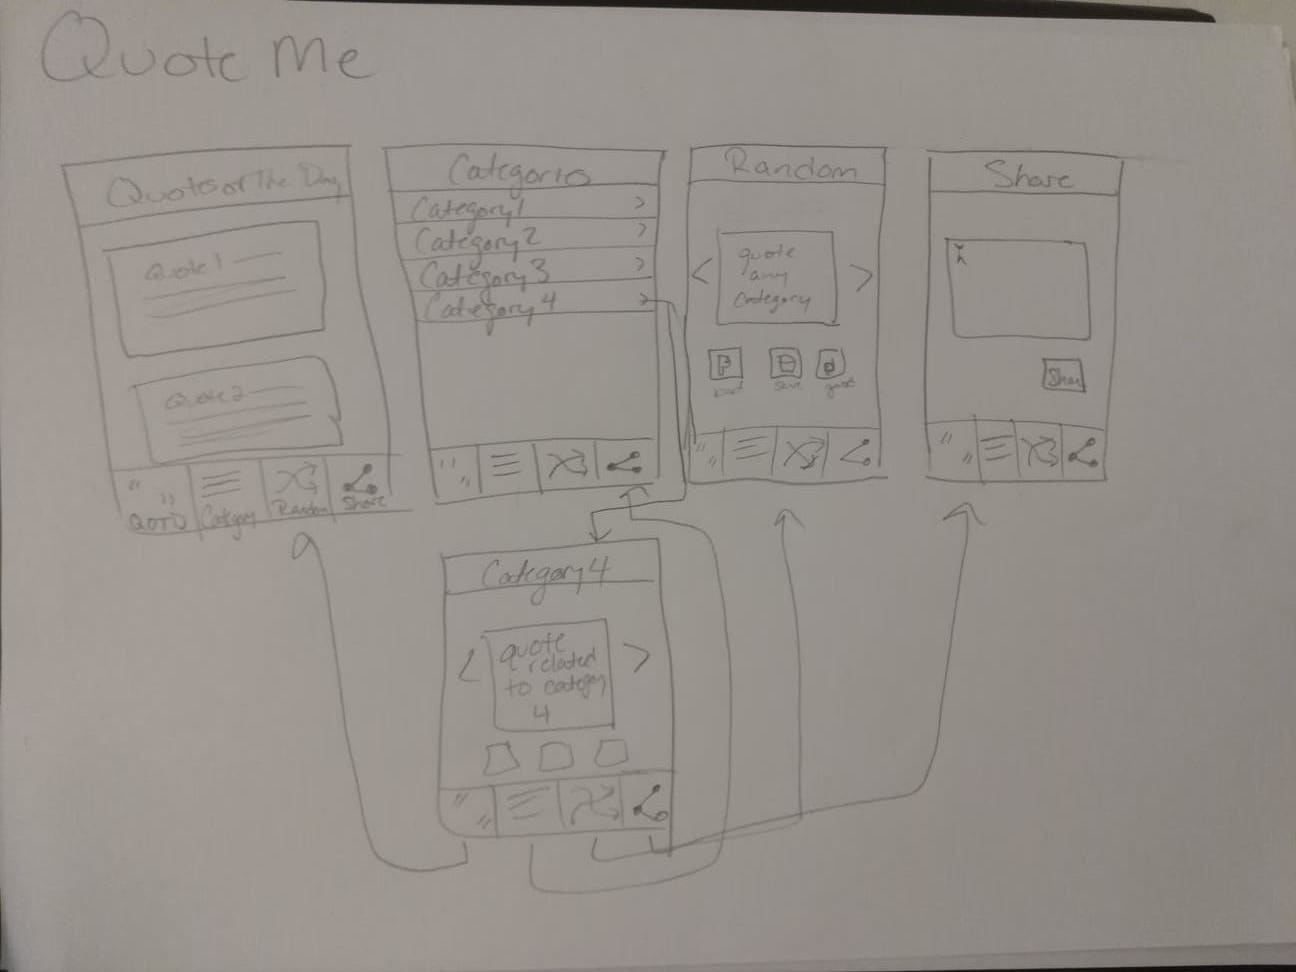 Quote Me
Quotes of The Day
Quote 1
Quote 2
QOTD
Category
Random
Share
Categories
Category 1
Category 2
Category 3
Category 4
Random
quote
any
category
save
good
Share
Share
Category 4
quote
related
to category
4